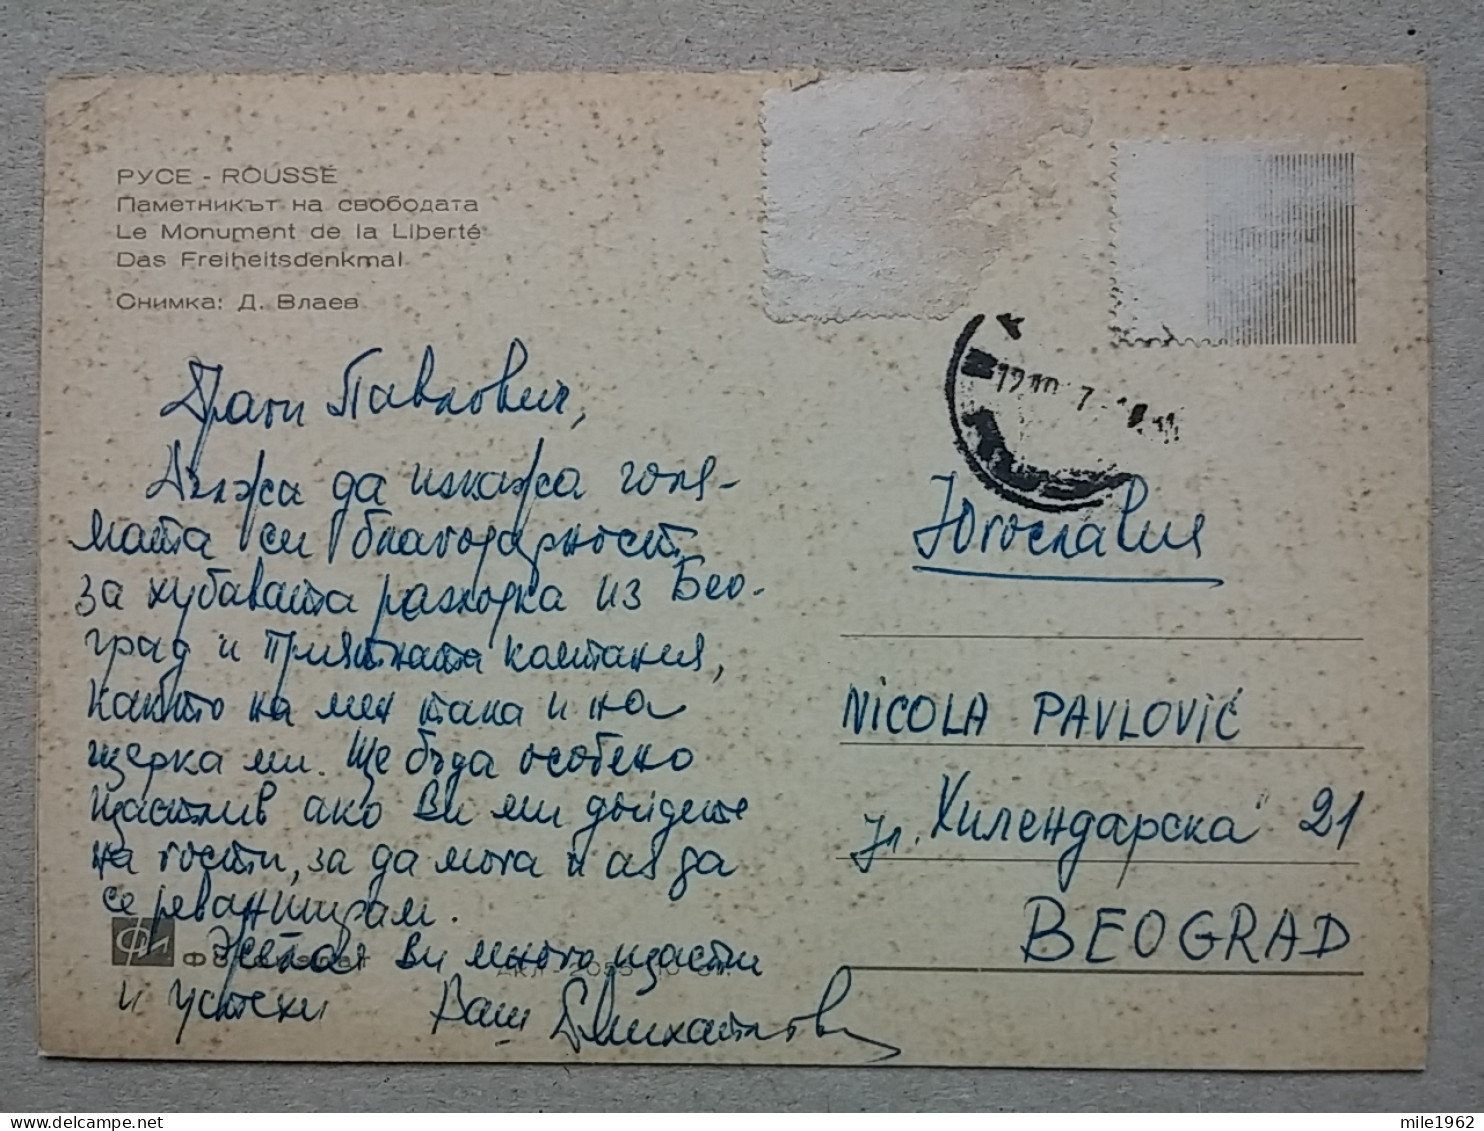 РУСЕ - ROUSSE
Паметникът на свободата
Le Monument de la Liberté
Das Freiheitsdenkmal
Снимка: Д. Влаев
Драги Павлович,
Длъжа да изкажа голя-
мата си благодарност
за хубавата разходка из Бео-
град и приятната компания,
както на мен така и на
щерка ми. Ще бъда особено
щастлив ако Ви ми дойдете
на гости, за да мога и аз да
се реванширам.
Желая ви много щастие
и успехи Ваш
Югославия
NICOLA PAVLOVIĆ
ул. "Хилендарска" 21
BEOGRAD
mile1962